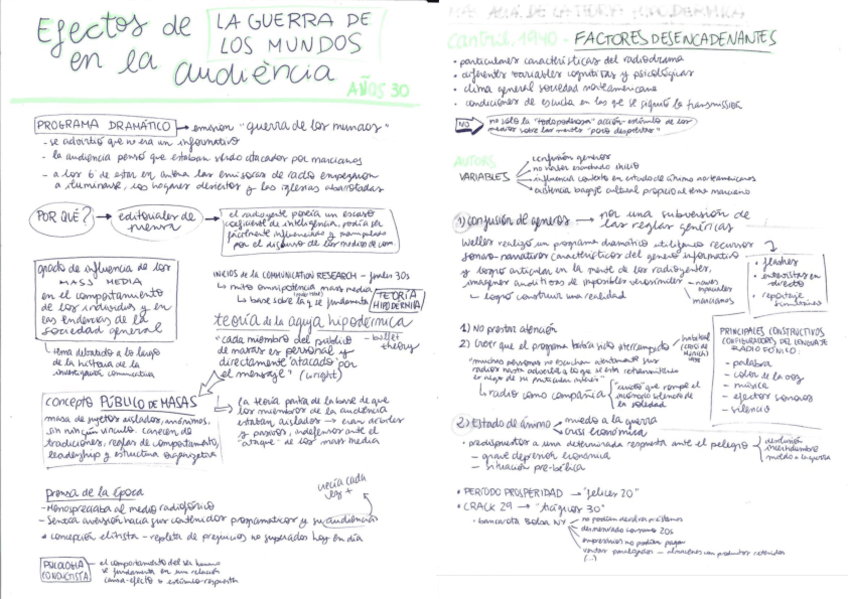 Efectos de LA GUERRA DE
LOS MUNDOS
en la audiència
AÑOS 30
PROGRAMA DRAMÁTICO → emisión "guerra de los mundos"
- se advirtió que no era un informativo
- la audiencia pensó que estaban siendo atacados por marcianos
- a los 6' de estar en antena las emisoras de radio empezaron
a iluminarse, los hogares desiertos y las iglesias abarrotadas
POR QUÉ? → editoriales de prensa → el radioyente poseía un escaso
coeficiente de inteligencia, podía ser
fácilmente influenciado y manipulado
por el discurso de los medios de com.
grado de influencia de los
MASS MEDIA
en el comportamiento
de los individuos y en
las tendencias de la
sociedad general
↳ tema debatido a lo largo
de la historia de la
investigación comunicativa
INICIOS de la COMMUNICATION RESEARCH - finales 30s
↳ mito omnipotencia mass media
↳ base sobre la q se fundamenta TEORÍA
HIPODERMIA
teoría de la aguja hipodérmica
- bullet theory
"cada miembro del público
de masas es personal y
directamente "atacado" por
el mensaje" (wright)
concepto PÚBLICO DE MASAS
masa de sujetos aislados, anónimos,
sin ningún vínculo. carecen de
tradiciones, reglas de comportamiento,
leadership y estructura organizativa
↳ la teoría partía de la base de que
los miembros de la audiencia
estaban aislados → eran débiles
y pasivos, indefensos ante el
"ataque" de los mass media
prensa de la época
- Menospreciaba al medio radiofónico
- Sentía aversión hacia sus contenidos programáticos y su audiencia
crecía cada vez +
• concepción elitista - repleta de prejuicios no superados hoy en día
PSICOLOGÍA
CONDUCTISTA
→ el comportamiento del ser humano
se fundamenta en una relación
causa-efecto o estímulo-respuesta
Cantril, 1940 - FACTORES DESENCADENANTES
• particulares características del radiodrama
• diferentes variables cognitivas y psicológicas
• clima general sociedad norteamericana
• condiciones de escucha en las que se siguió la transmisión
NO
no sólo la "todopoderosa" acción-estímulo de los
medios sobre las mentes "poco despiertas"
AUTORS
VARIABLES
confusión géneros
no haber escuchado inicio
influencia contexto en estado de ánimo norteamericanos
existencia bagaje cultural propicio al tema marciano
1) confusión de géneros → por una subversión de
las reglas genéricas
Welles realizó un programa dramático utilizando recursos
sonoro-narrativos característicos del género informativo
y logró articular en la mente de los radioyentes,
imágenes auditivas de imposibles verosímiles
naves espaciales
marcianos
↳ logró construir una realidad
• flashes
• entrevistas en
directo
• reportaje
1) No prestar atención
2) Creer que el programa había sido interrumpido
"muchas personas no escuchan atentamente su
radio hasta advertir q lo que se está retransmitiendo
es algo de su particular interés"
↳ radio como compañía
PRINCIPALES CONSTRUCTIVOS
CONFIGURADORES DEL LENGUAJE
RADIOFÓNICO:
- palabra
- color de la voz
- música
- efectos sonoros
- silencio
2) Estado de ánimo
miedo a la guerra
crisis económica
• predispuestos a una determinada respuesta ante el peligro
desilusión
incertidumbre
miedo a la guerra
- grave depresión económica
- situación pre-bélica
• PERIODO PROSPERIDAD → "felices 20"
• CRACK 29 → "trágicos 30"
• bancarrota Bolsa NY
(...)